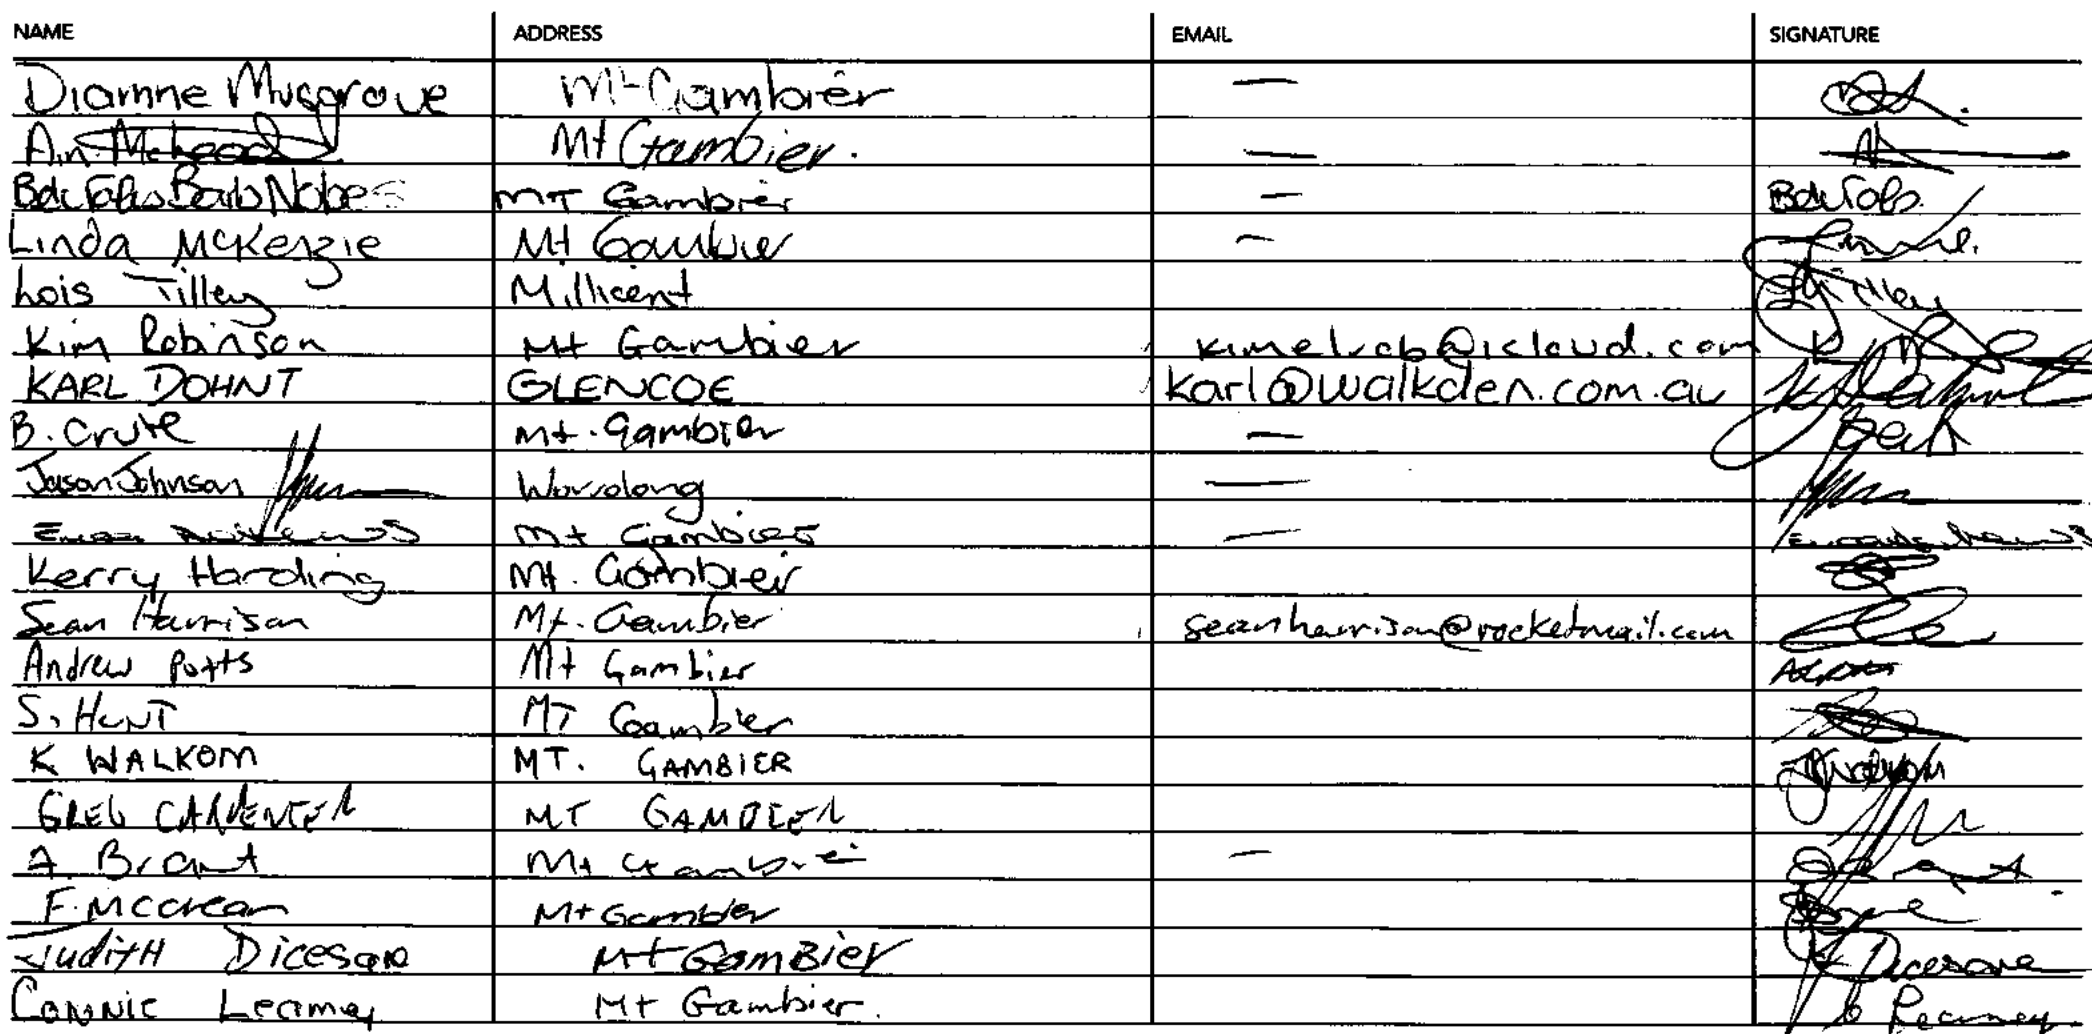 NAME ADDRESS EMAIL SIGNATURE
Dianne Musgrove Mt Gambier —
A.n. McLeod Mt Gambier. —
Barb Nobes MT Gambier —
Linda McKenzie Mt Gambier —
Lois Tilley Millicent Tilley
Kim Robinson Mt Gambier kimelrob@icloud.com
KARL DOHNT GLENCOE karl@walkden.com.au
B. Crute Mt. Gambier —
Jason Johnson Worrolong —
Mt Gambier —
Kerry Harding Mt. Gambier
Sean Harrison Mt. Gambier seanharrison@rocketmail.com
Andrew Potts Mt Gambier
S. HUNT MT Gambier
K WALKOM MT. GAMBIER
GREG CARPENTER MT GAMBIER
A. Brant Mt Gambier —
F. McCrean Mt Gambier
Judith Dicesare Mt Gambier Dicesare
Connie Learney Mt Gambier. Learney